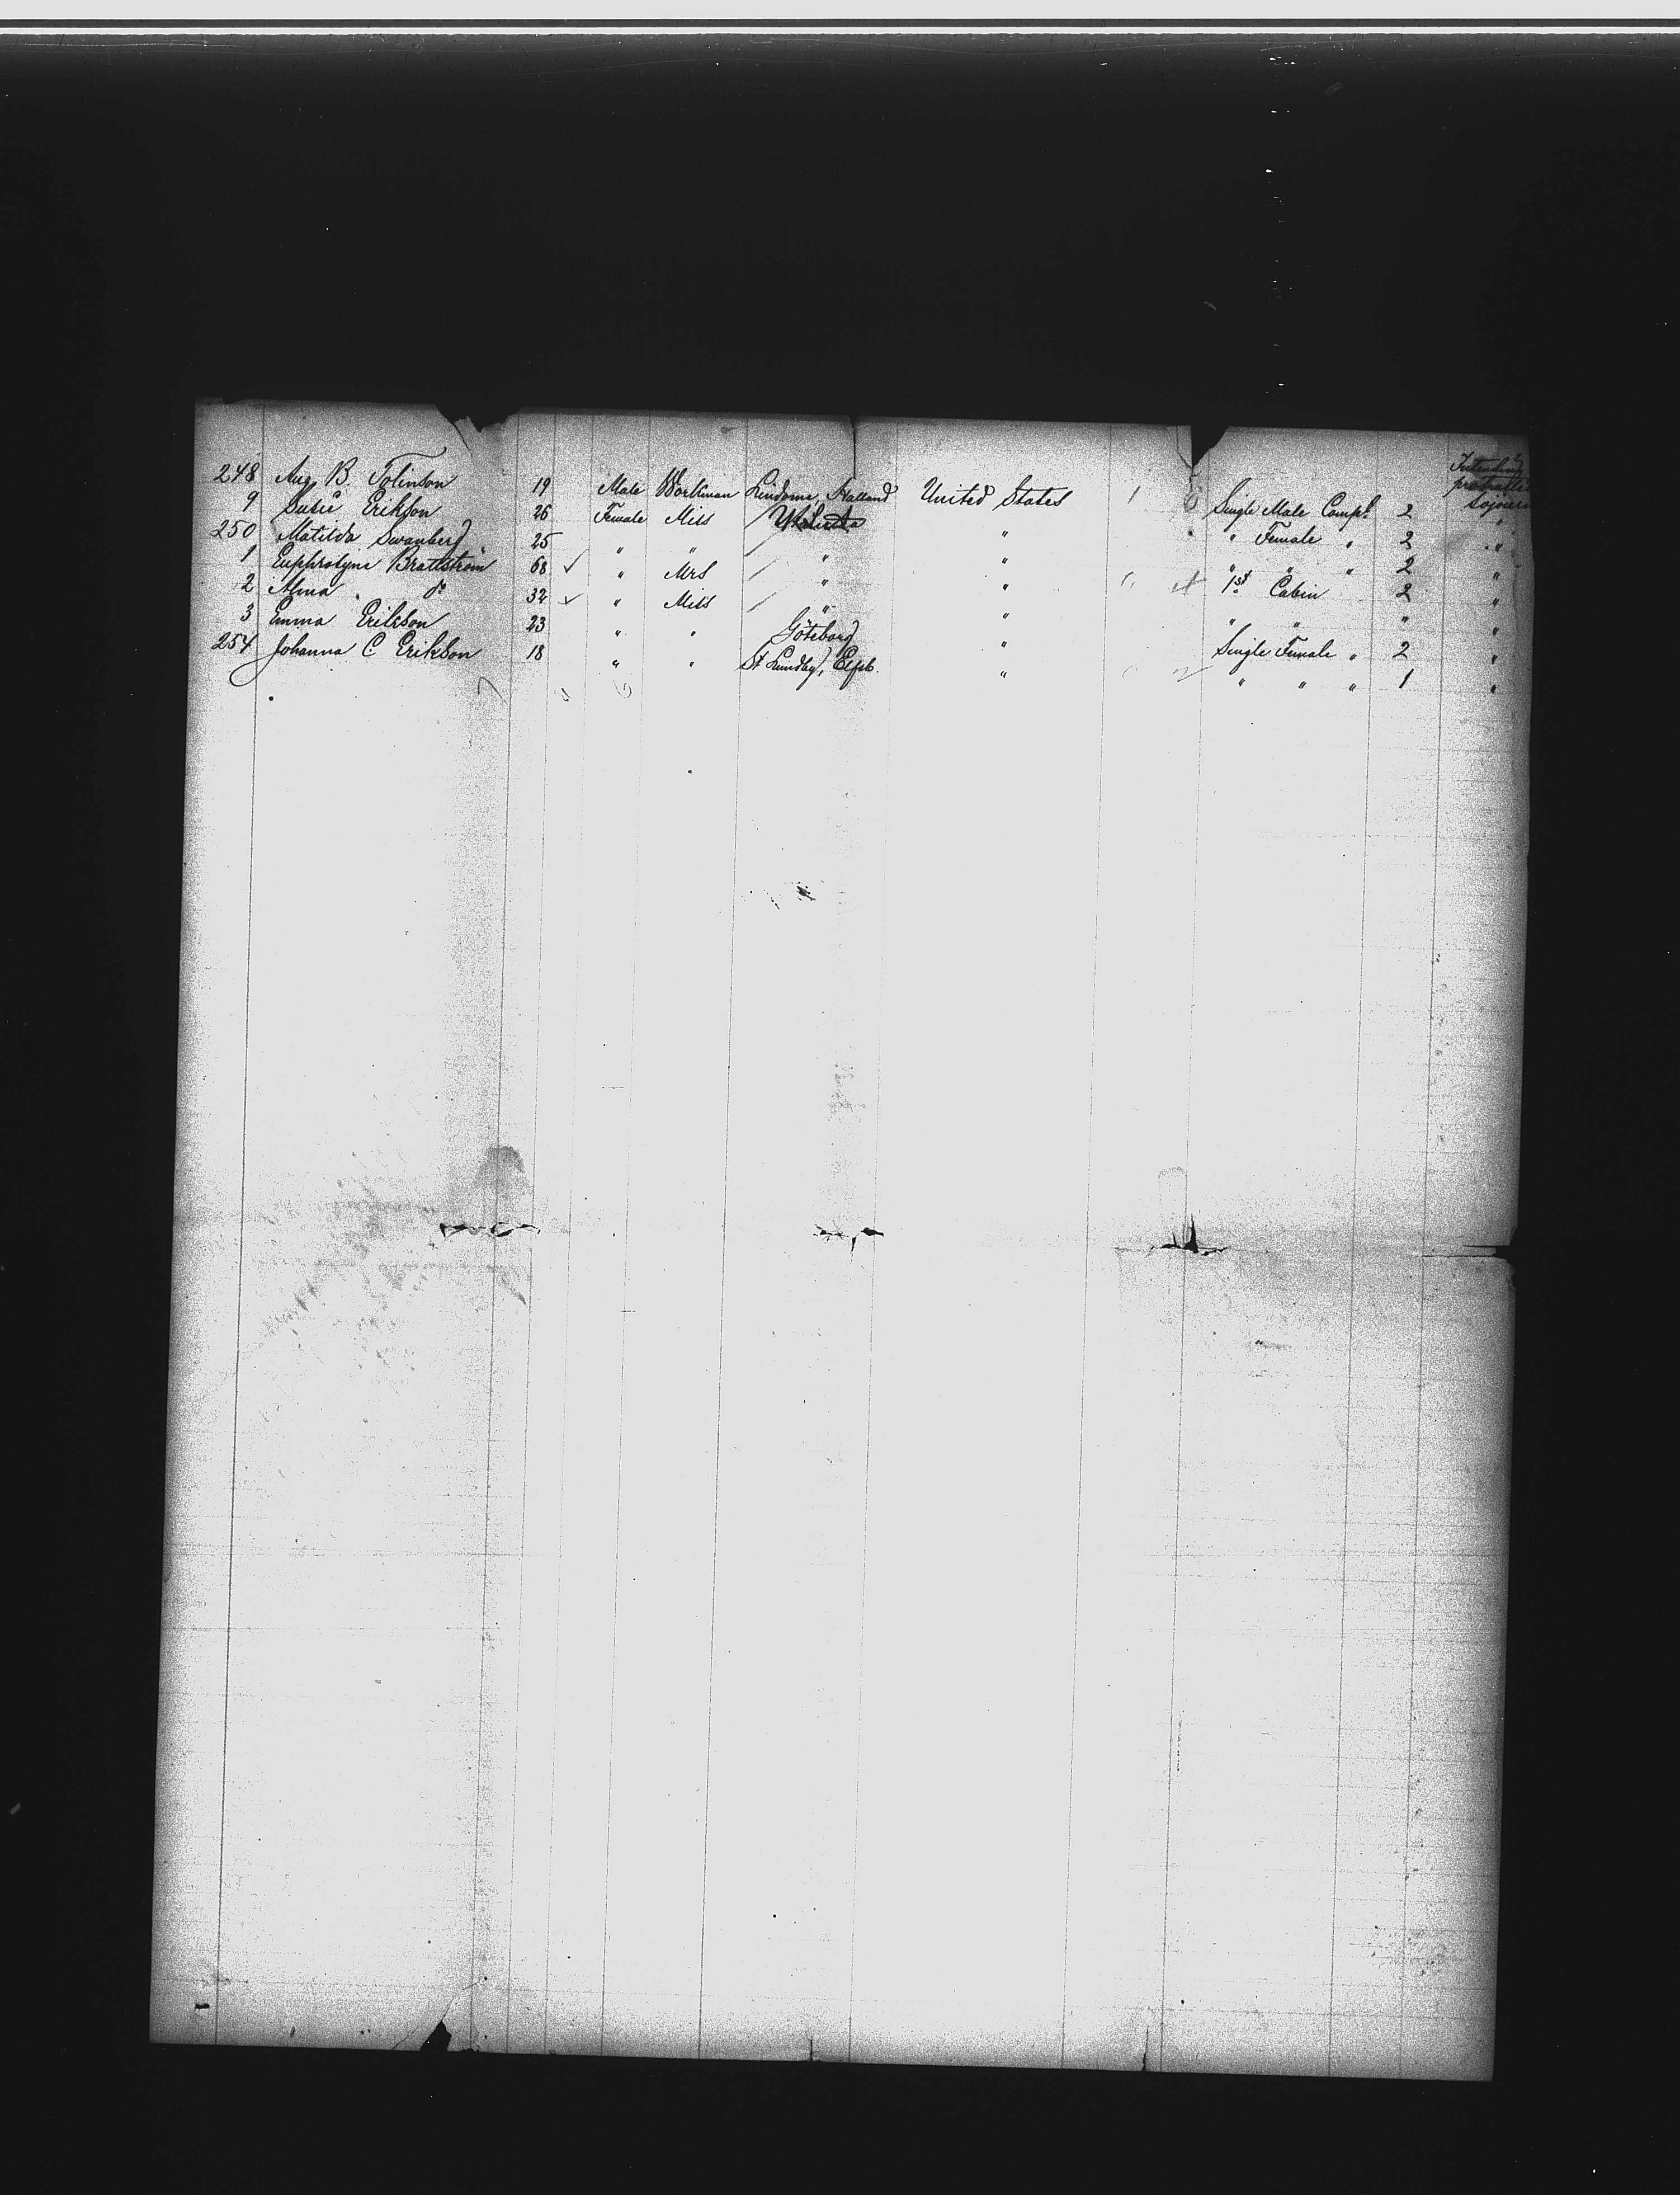 248 Aug B. Tolinson 19 Male Workman Lindome, Halland United States 1 Single Male Compt. 2 Intending protracted sojourn
9 Susie Erikson 26 Female Miss " " Female " 2 "
250 Matilda Swanberg 25 " " " " " " " 2 "
1 Euphrosyne Brattström 68 ✓ " Mrs " " 1st Cabin 2 "
2 Alma do 32 ✓ " Miss " " " " " "
3 Emma Erikson 23 " " Göteborg " Single Female " 2 "
254 Johanna C Erikson 18 " " St Lundby, Elfsb. " " " " 1 "